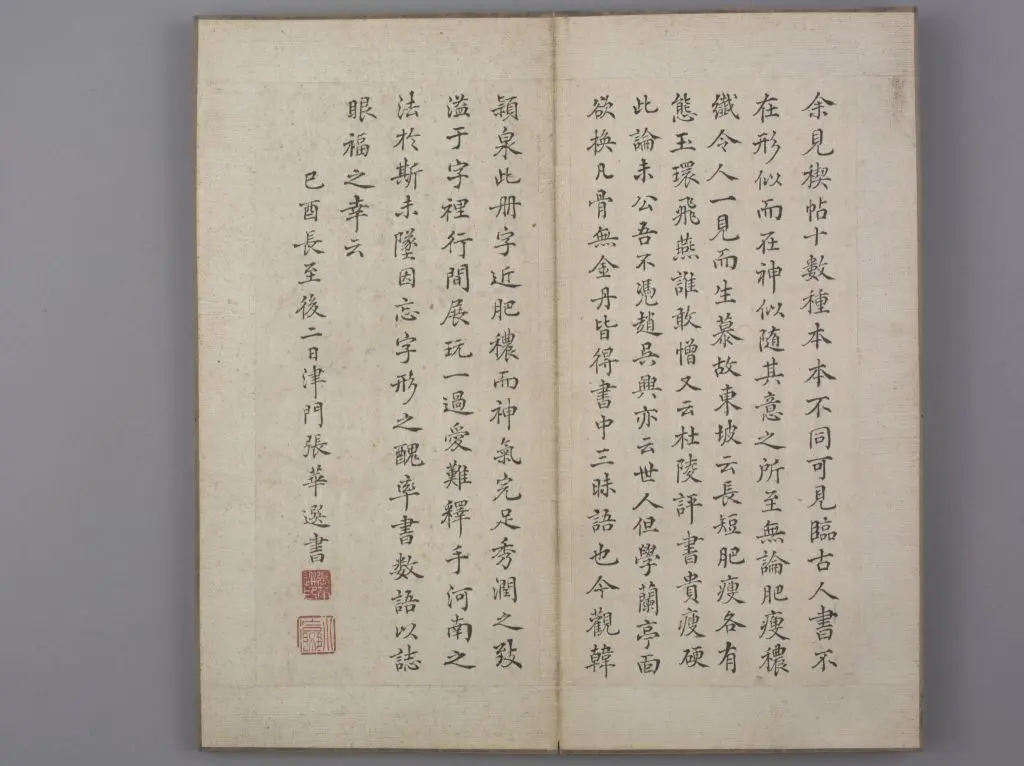 余見稧帖十數種本本不同可見臨古人書不
在形似而在神似随其意之所至無論肥瘦穠
纖令人一見而生慕故東坡云長短肥瘦各有
態玉環飛燕誰敢憎又云杜陵評書貴瘦硬
此論未公吾不憑趙吳興亦云世人但學蘭亭面
欲換凡骨無金丹皆得書中三昧語也今觀韓
頴泉此册字近肥穠而神氣完足秀潤之致
溢于字裡行間展玩一過愛難釋手河南之
法於斯未墜因忘字形之醜率書数語以誌
眼福之幸云
己酉長至後二日津門張華選書